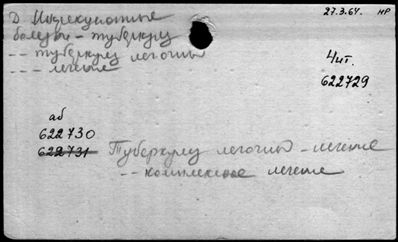 27.3.64. НР
Д Инфекционные
болезни - туберкулез
-- туберкулез легочный
--- лечение
Чит.
622729
аб
622730
622731
Туберкулез легочный - лечение
-- комплексное лечение